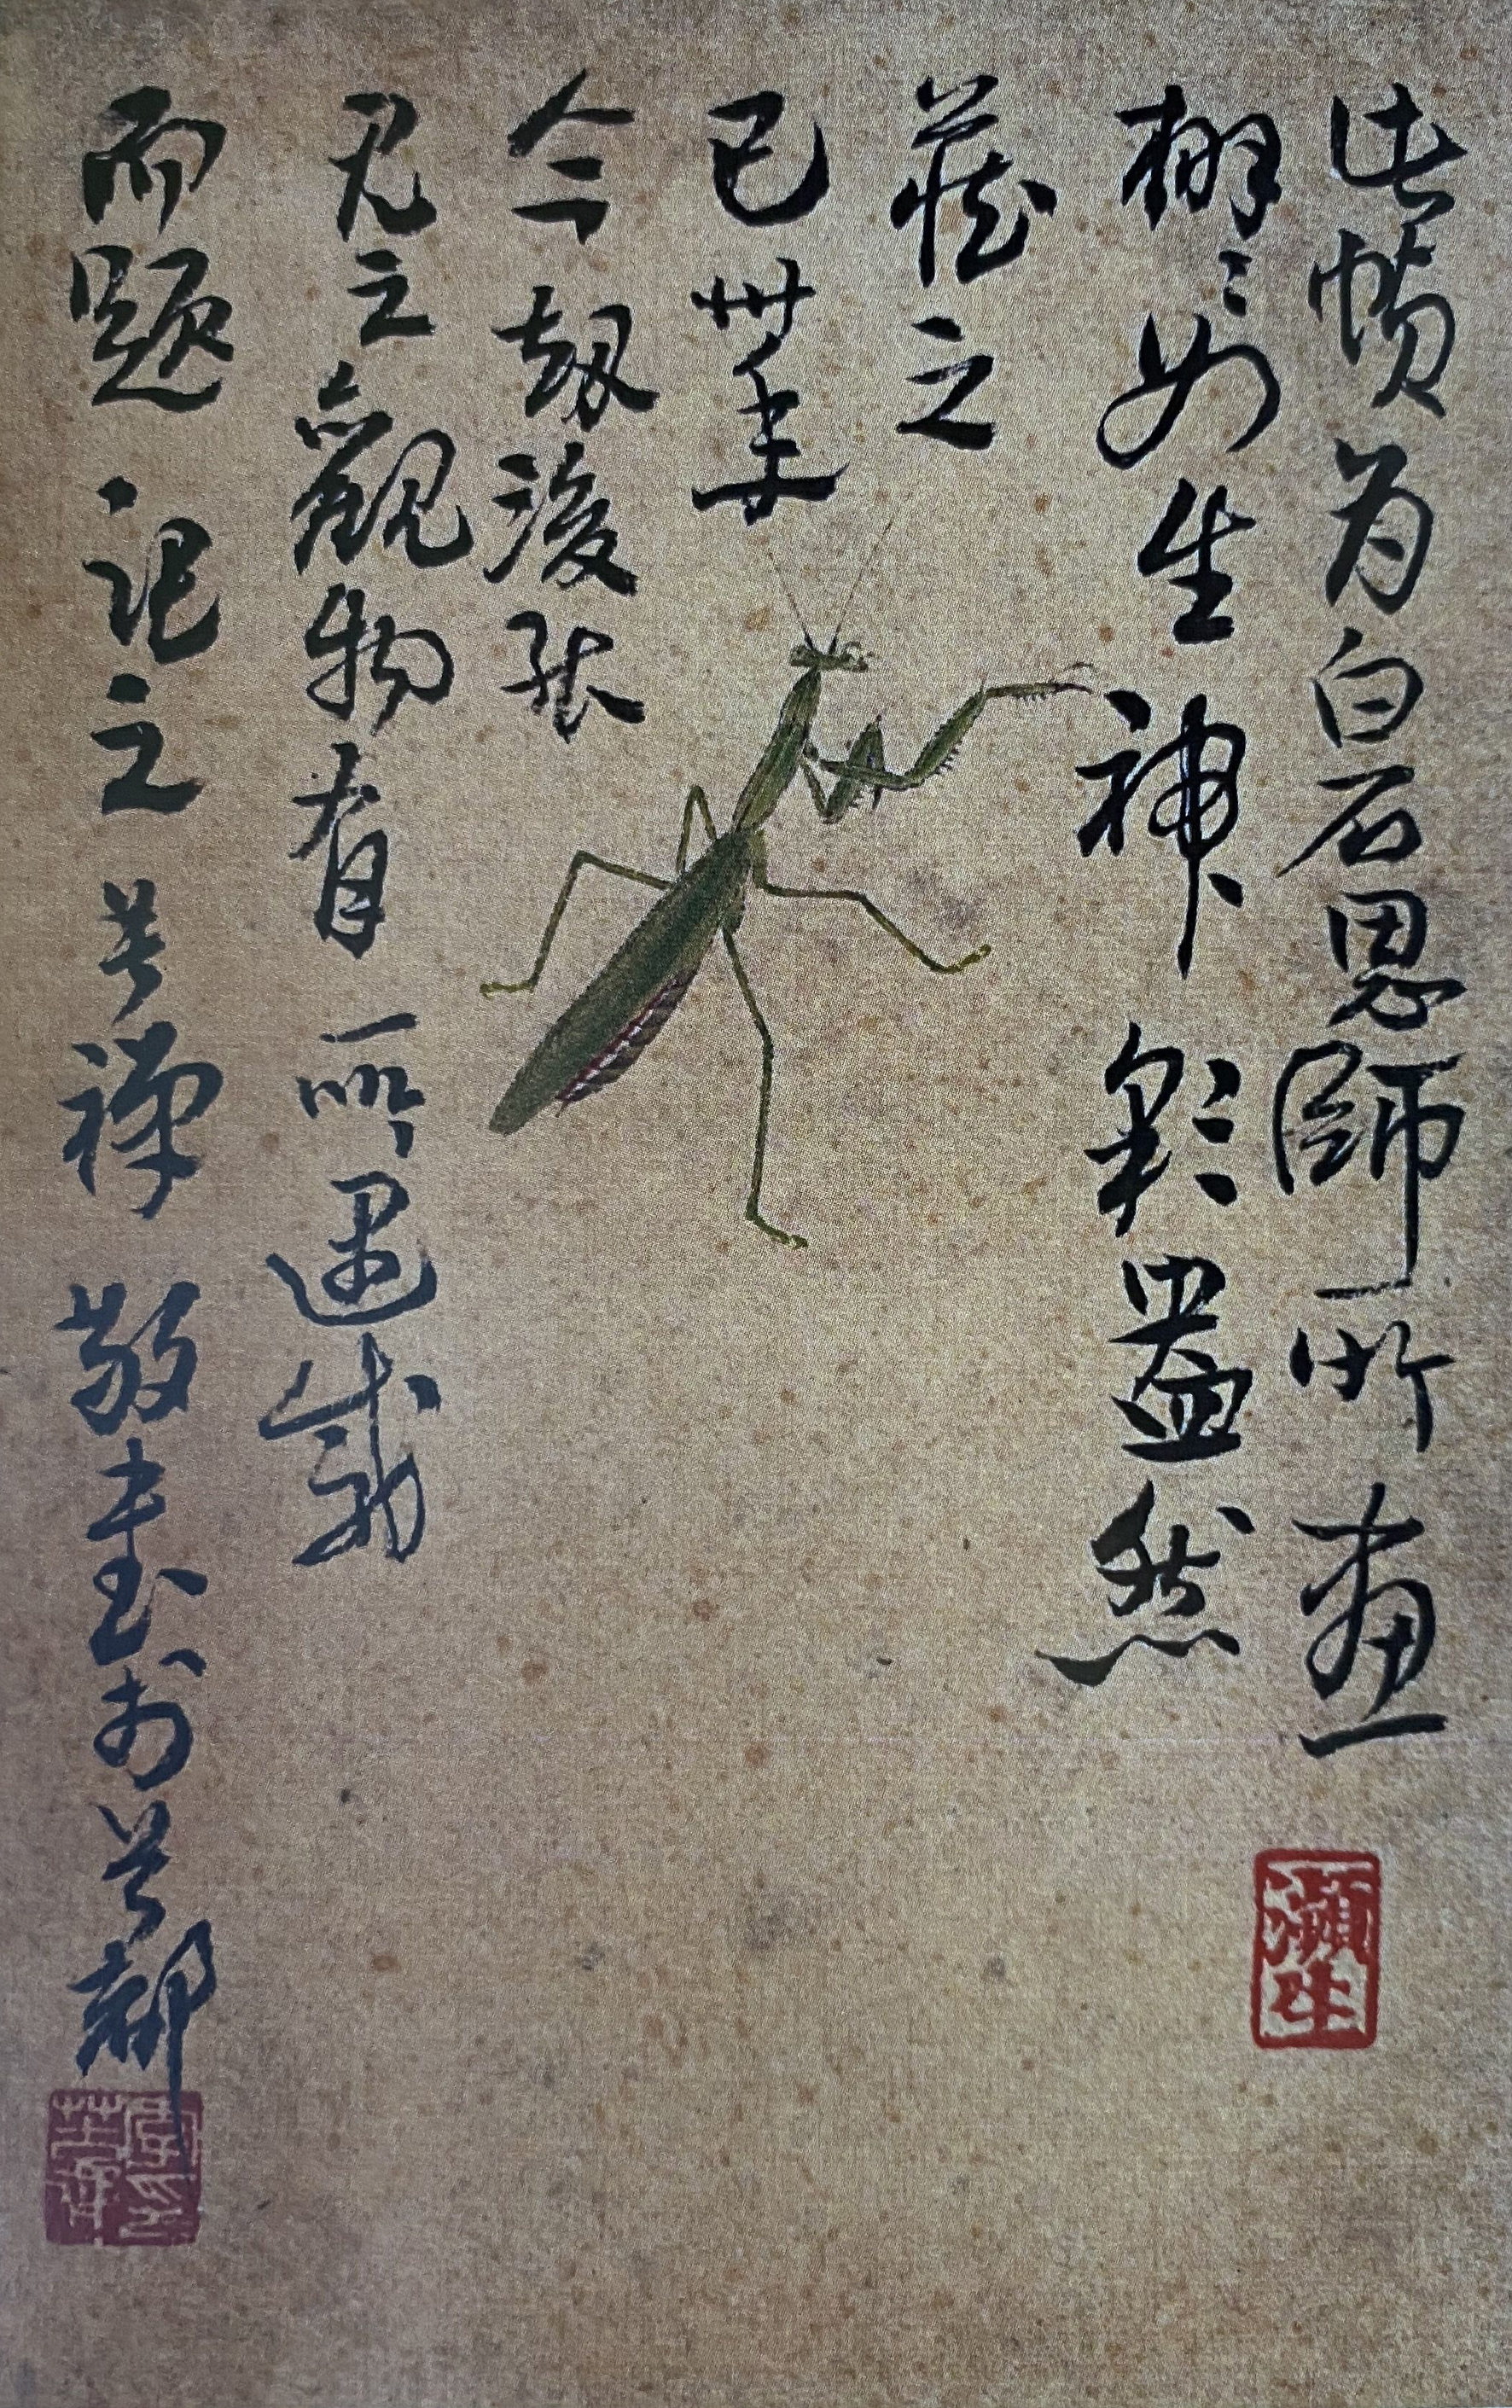 此幀为白石恩師所畫
栩〻如生神彩盎然
藏之
已卅年
今劫後
見之觀物有所遇感
而題記之苦禅敬書於首都
瀕生